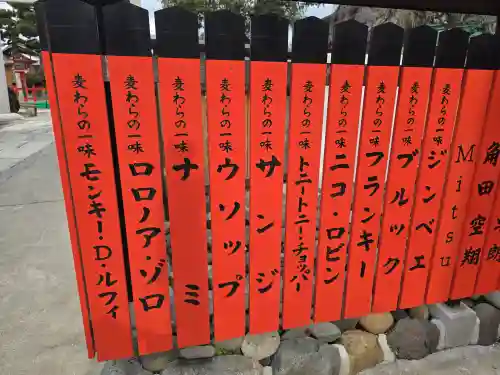 麦わらの一味 モンキー・D・ルフィ
麦わらの一味 ロロノア・ゾロ
麦わらの一味 ナミ
麦わらの一味 ウソップ
麦わらの一味 サンジ
麦わらの一味 トニートニー・チョッパー
麦わらの一味 ニコ・ロビン
麦わらの一味 フランキー
麦わらの一味 ブルック
麦わらの一味 ジンベエ
Mitsu
角田空翔